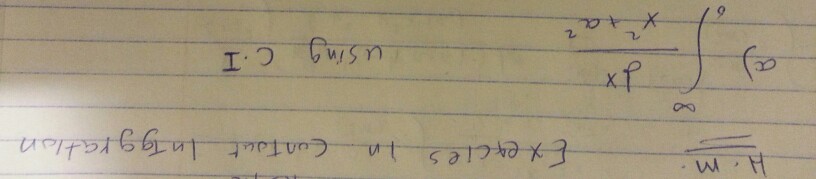 H.M. Exercies in Contour Intggration
a) ∫₀^∞ dx / x² + a² using C.I